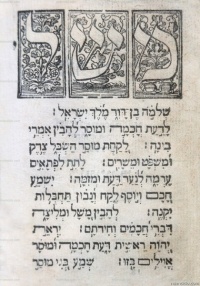 משל
שלמה בן דוד מלך ישראל :
לדעת חכמה ומוסר להבין אמרי
בינה : לקחת מוסר השכל צדק
ומשפט ומשרים : לתת לפתאים
ערמה לנער דעת ומזמה : ישמע
חכם ויוסף לקח ונבון תחבלות
יקנה : להבין משל ומליצה
דברי חכמים וחידתם : יראת
יהוה ראשית דעת חכמה ומוסר
אוילים בזו : שמע בני מוסר